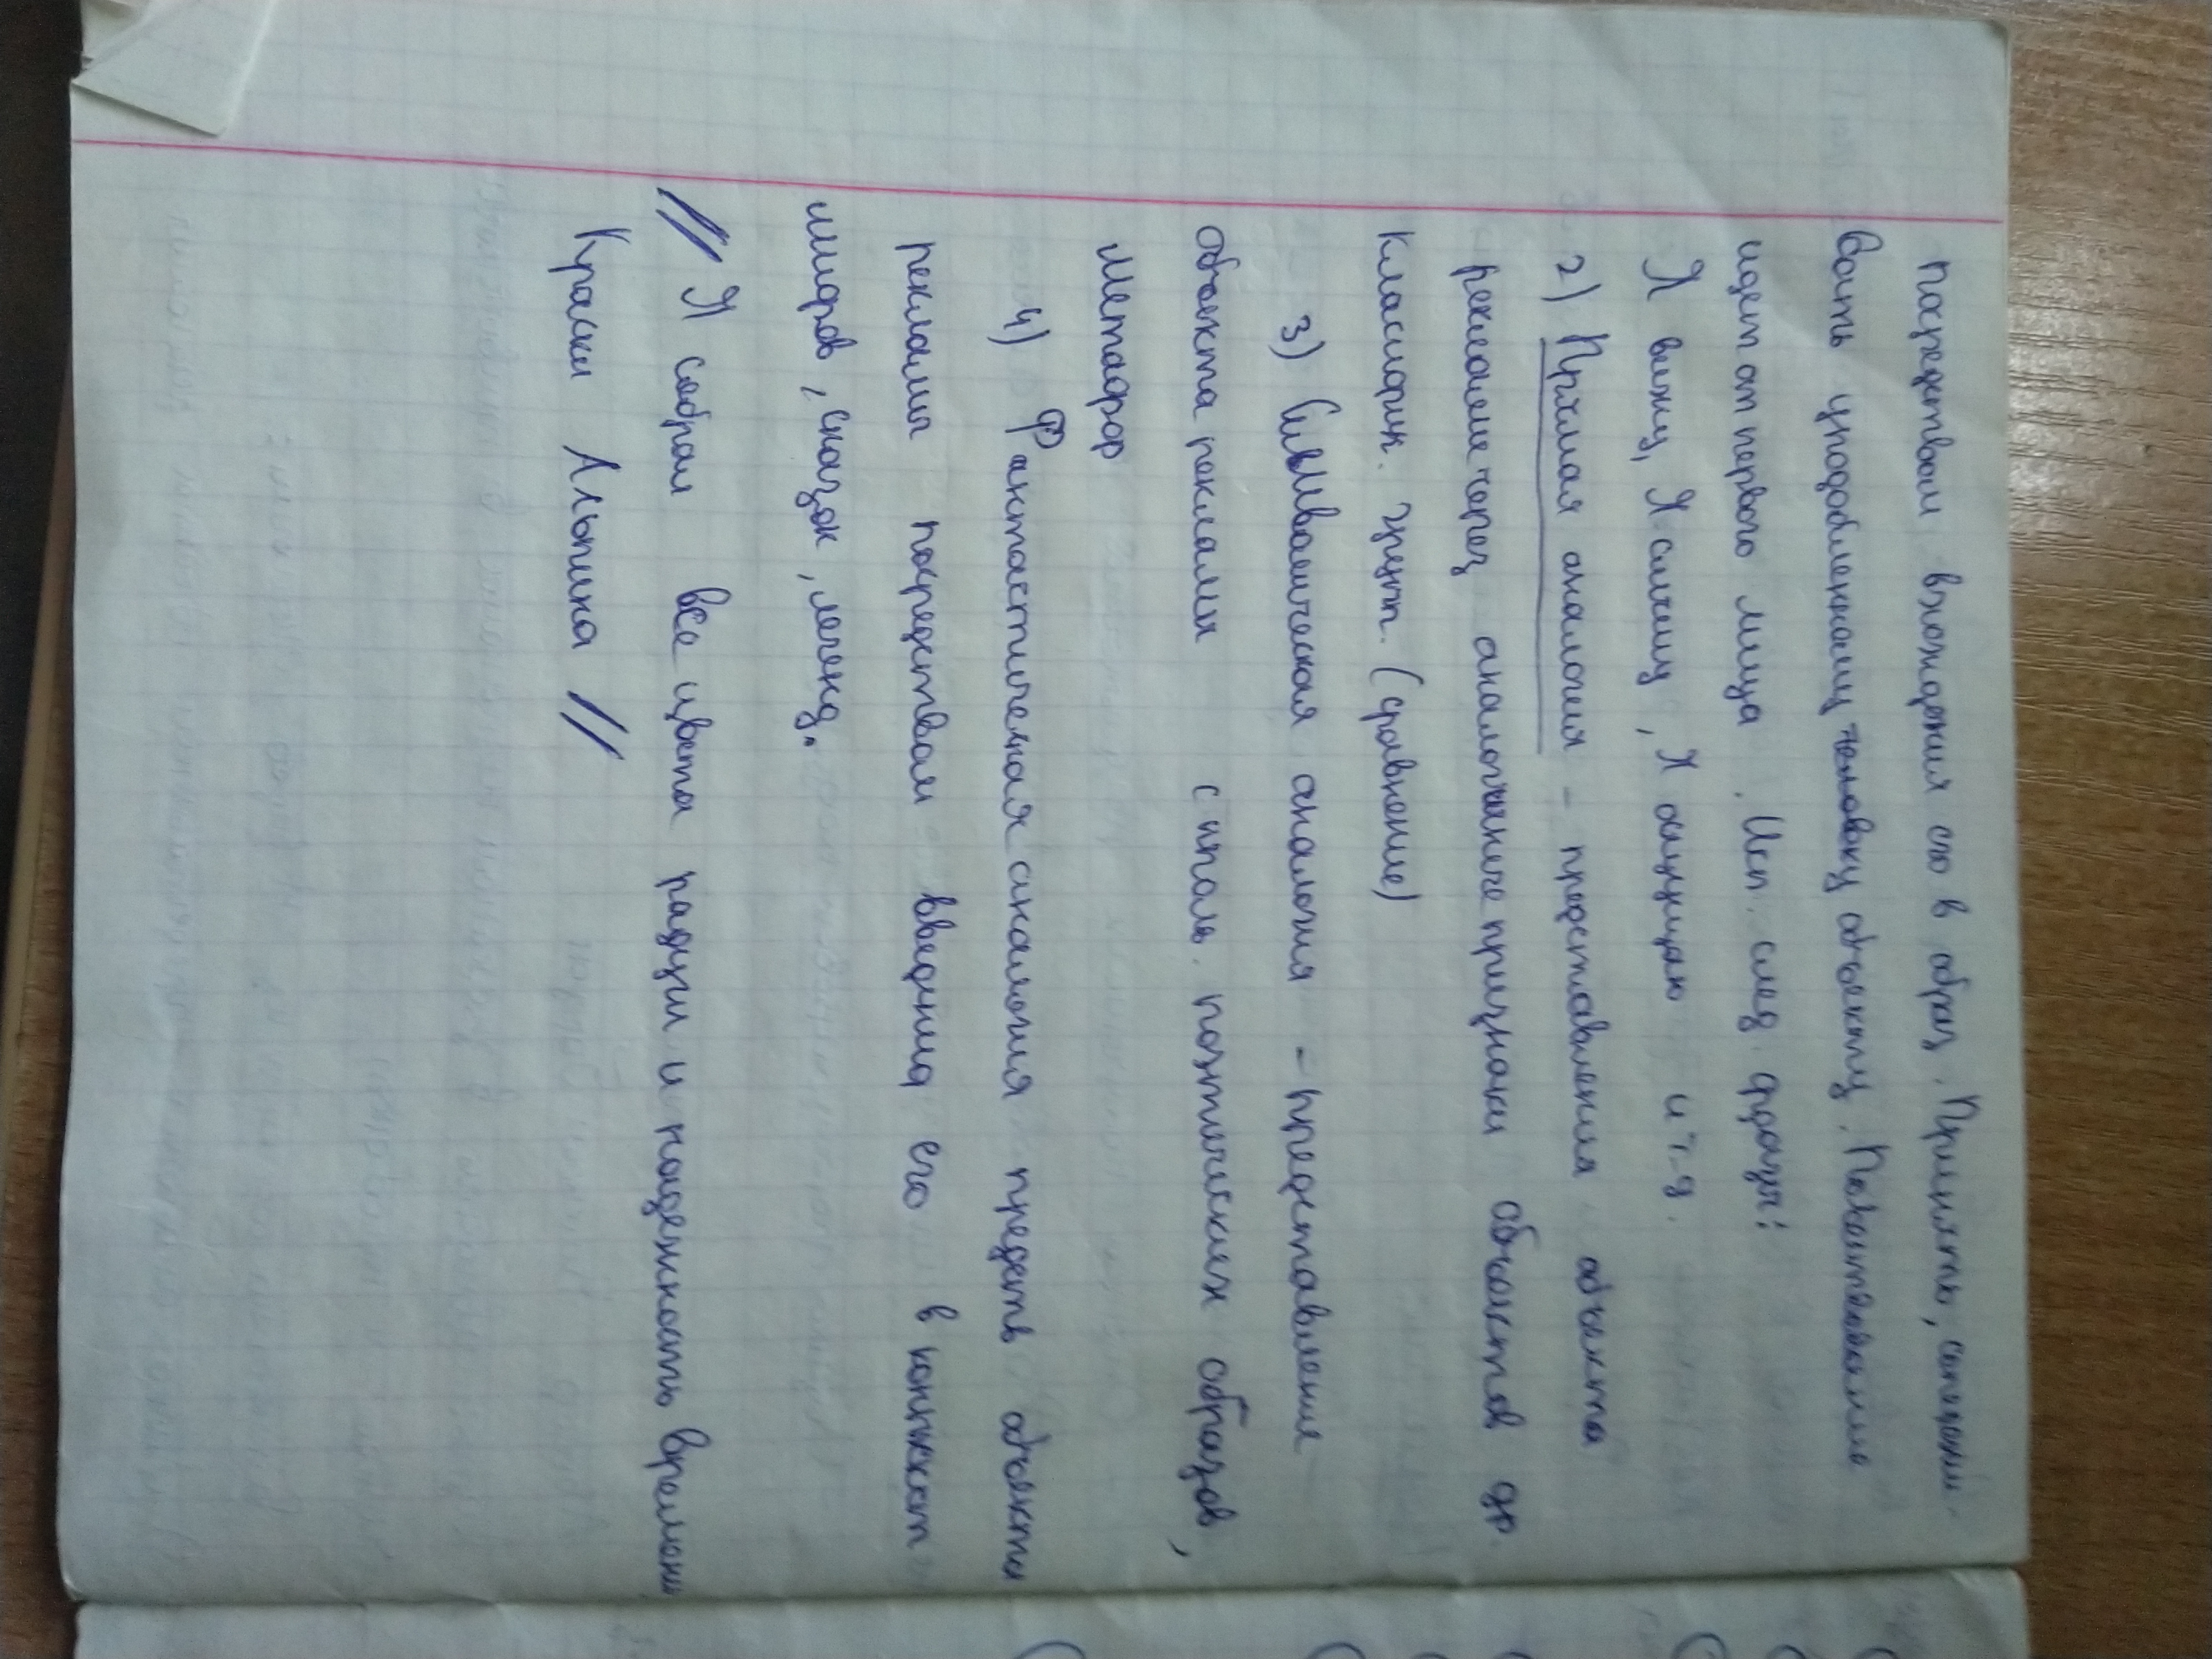 посредством вхождения его в образ. Принять, способн-
бость уподобленному человеку объекту. Повествование
идет от первого лица. Исп. след. фразы:
Я вижу, Я слышу, Я ощущаю и т.д.
2) Прямая аналогия - представления объекта
рекламе через аналогичные признаки объектов др.
классифик. групп. (сравнение)
3) Символическая аналогия - представление
объекта рекламы с исполь. поэтических образов,
метафор
4) Фантастическая аналогия предств объекты
рекламы посредством введения его в контекст
мифов, сказок, легенд.
// Я собрал все цвета радуги и надежность времени
Краски Альпина //